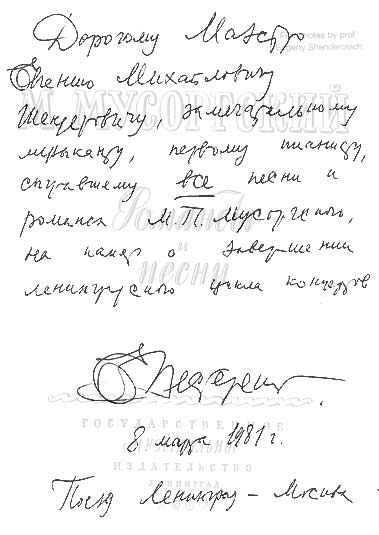 Дорогому Маэстро
Footnotes by prof
Evgeny Shenderovich
Евгению Михайловичу
М. МУСОРГСКИЙ
Шендеровичу, замечательному
музыканту, первому пианисту,
сыгравшему все песни и
романсы М.П. Мусоргского,
на память о завершении
песни
ленинградского цикла концертов
ГОСУДАРСТВЕННОЕ
8 марта 1981 г.
МУЗЫКАЛЬНОЕ
ИЗДАТЕЛЬСТВО
ЛЕНИНГРАД
Поезд Ленинград – Москва